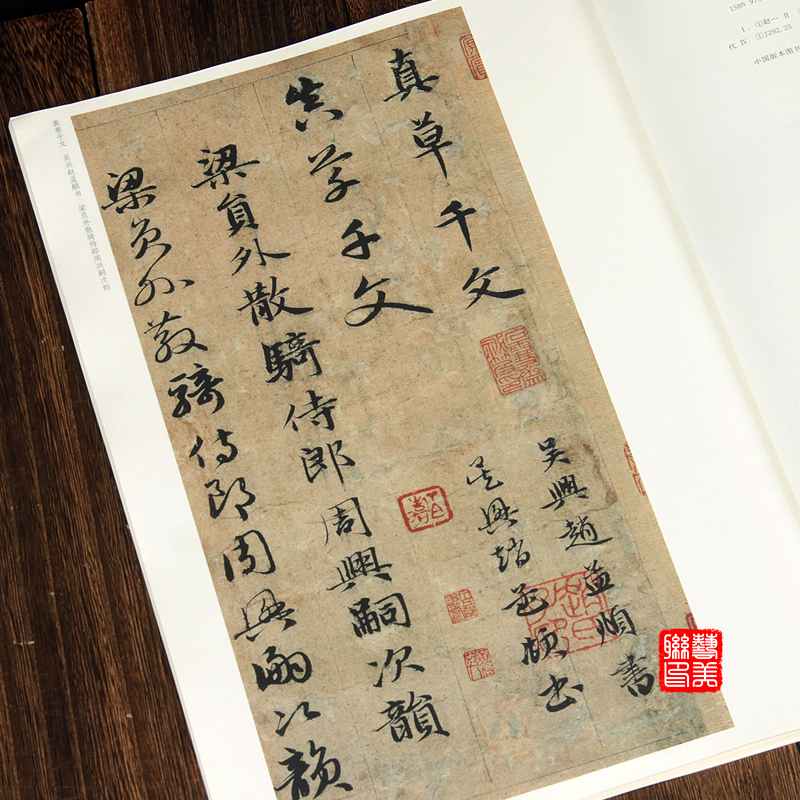 ISBN 97
Ⅰ. ①赵… Ⅱ.
代 Ⅳ. ①J292.25
中国版本图书
真草千文
吳興趙孟頫書
真草千文
吳興趙孟頫書
梁員外散騎侍郎周興嗣次韻
梁員外散騎侍郎周興嗣次韻
真草千文 吴兴赵孟頫书 梁员外散骑侍郎周兴嗣次韵
藝美
聯印